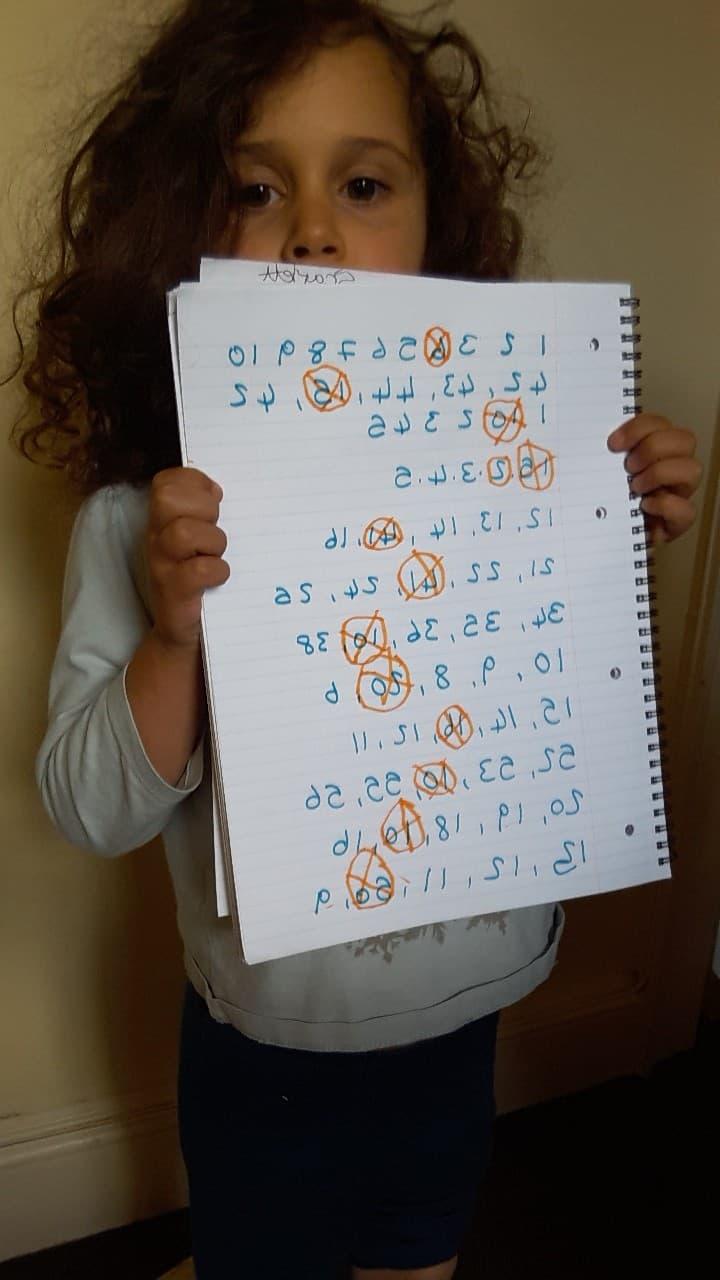 1 2 3 5 6 7 8 9 10
42, 43, 44, 15, 45
1 10 2 3 4 5
15.2.3.4.5
12, 13, 14, 41, 16
21, 22, 41, 24, 25
34, 35, 36, 10, 38
10, 9, 8, 50, 6
15, 14, 12, 11
22, 23, 10, 25, 26
20, 19, 18, 10, 16
13, 12, 11, 50, 9